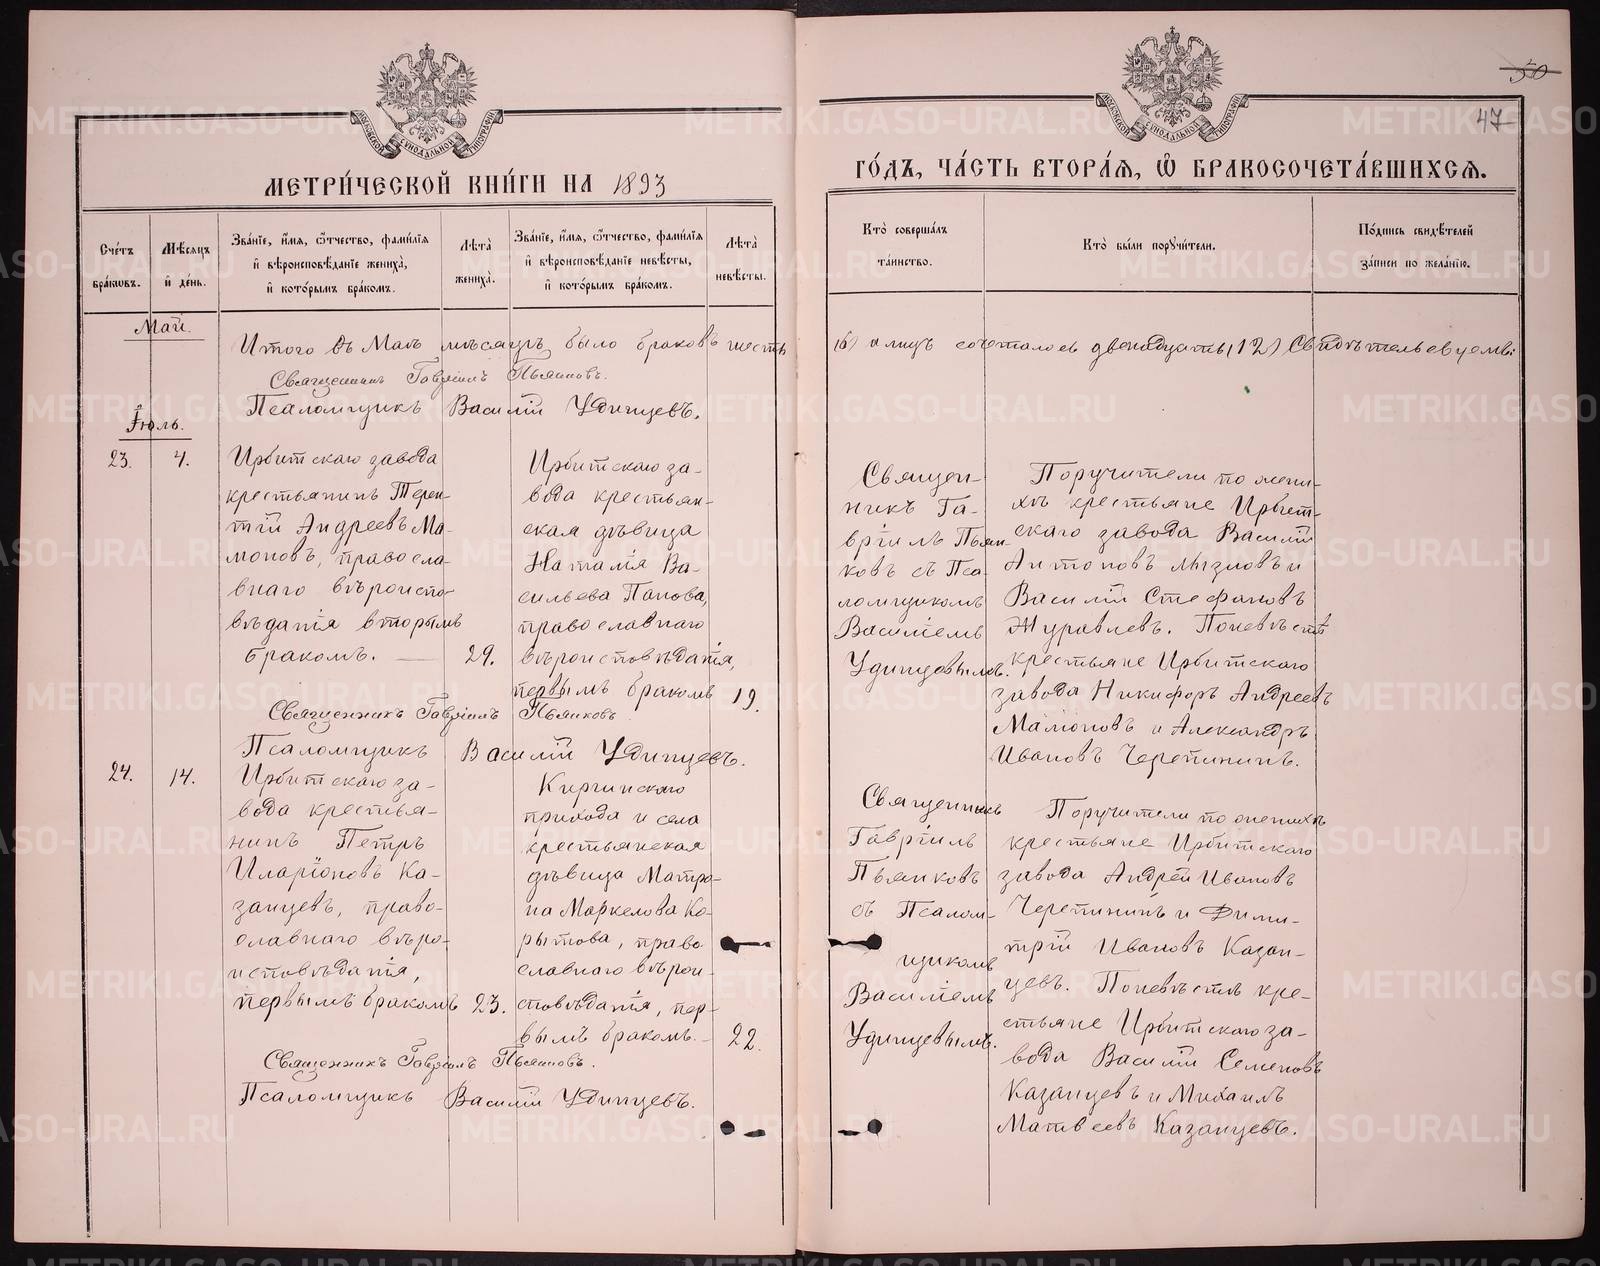 50
47
МЕТРИ́ЧЕСКОЙ КНИ́ГИ НА 1893
ГО́ДЪ, ЧА́СТЬ ВТОРА́Я, Ѽ БРАКОСОЧЕТА́ВШИХСЯ.
Сче́тъ бра́ковъ.
Мѣ́сяцъ и҆ де́нь.
Зва́нїе, и҆́мя, ѻ҆́тчество, фами́лїя и҆ вѣроисповѣ́данїе жениха̀, и҆ кото́рымъ бра́комъ.
Лѣ́та жениха̀.
Зва́нїе, и҆́мя, ѻ҆́тчество, фами́лїя и҆ вѣроисповѣ́данїе невѣ́сты, и҆ кото́рымъ бра́комъ.
Лѣ́та невѣ́сты.
Кто̀ соверша́лъ та́инство.
Кто̀ бы́ли порꙋчи́тели.
По́дпись свидѣ́телей за́писи по жела́нїю.
Май.
Итого въ Маѣ мѣсяцѣ было браковъ шесть (6) а лицъ сочеталось двенадцать (12) Свидѣтельствуемъ:
Священникъ Гавріилъ Пьянковъ.
Псаломщикъ Василій Удинцевъ.
Іюль.
23.
4.
Ирбитскаго завода
крестьянинъ Терен-
тій Андреевъ Ма-
моновъ, правосла-
внаго вѣроиспо-
вѣданія вторымъ
бракомъ. —
29.
Ирбитскаго за-
вода крестьян-
ская дѣвица
Наталія Ва-
сильева Панова,
православнаго
вѣроисповѣданія,
первымъ бракомъ
19.
Священ-
никъ Га-
вріилъ Пьян-
ковъ съ Пса-
ломщикомъ
Василіемъ
Удинцевымъ.
Поручители по жени-
хѣ крестьяне Ирбит-
скаго завода Василій
Антоновъ Мызловъ и
Василій Стефановъ
Журавлевъ. По невѣстѣ
крестьяне Ирбитскаго
завода Никифоръ Андреевъ
Мамоновъ и Александръ
Ивановъ Черепининъ.
Священникъ Гавріилъ Пьянковъ
Псаломщикъ Василій Удинцевъ.
24.
14.
Ирбитскаго за-
вода крестья-
нинъ Петръ
Иларіоновъ Ка-
занцевъ, право-
славнаго вѣро-
исповѣданія,
первымъ бракомъ
23.
Киргинскаго
прихода и села
крестьянская
дѣвица Матро-
на Маркелова Ко-
рытова, право
славнаго вѣрои-
сповѣданія, пер-
вымъ бракомъ. -
22.
Священникъ
Гавріилъ
Пьянковъ
съ Псалом-
щикомъ
Василіемъ
Удинцевымъ.
Поручители по женихѣ
крестьяне Ирбитскаго
завода Андрей Ивановъ
Черепининъ и Дими-
трій Ивановъ Казан-
цевъ. По невѣстѣ кре-
стьяне Ирбитскаго за-
вода Василій Семеновъ
Казанцевъ и Михаилъ
Матвеевъ Казанцевъ.
Священникъ Гавріилъ Пьянковъ.
Псаломщикъ Василій Удинцевъ.
METRIKI.GASO-URAL.RU